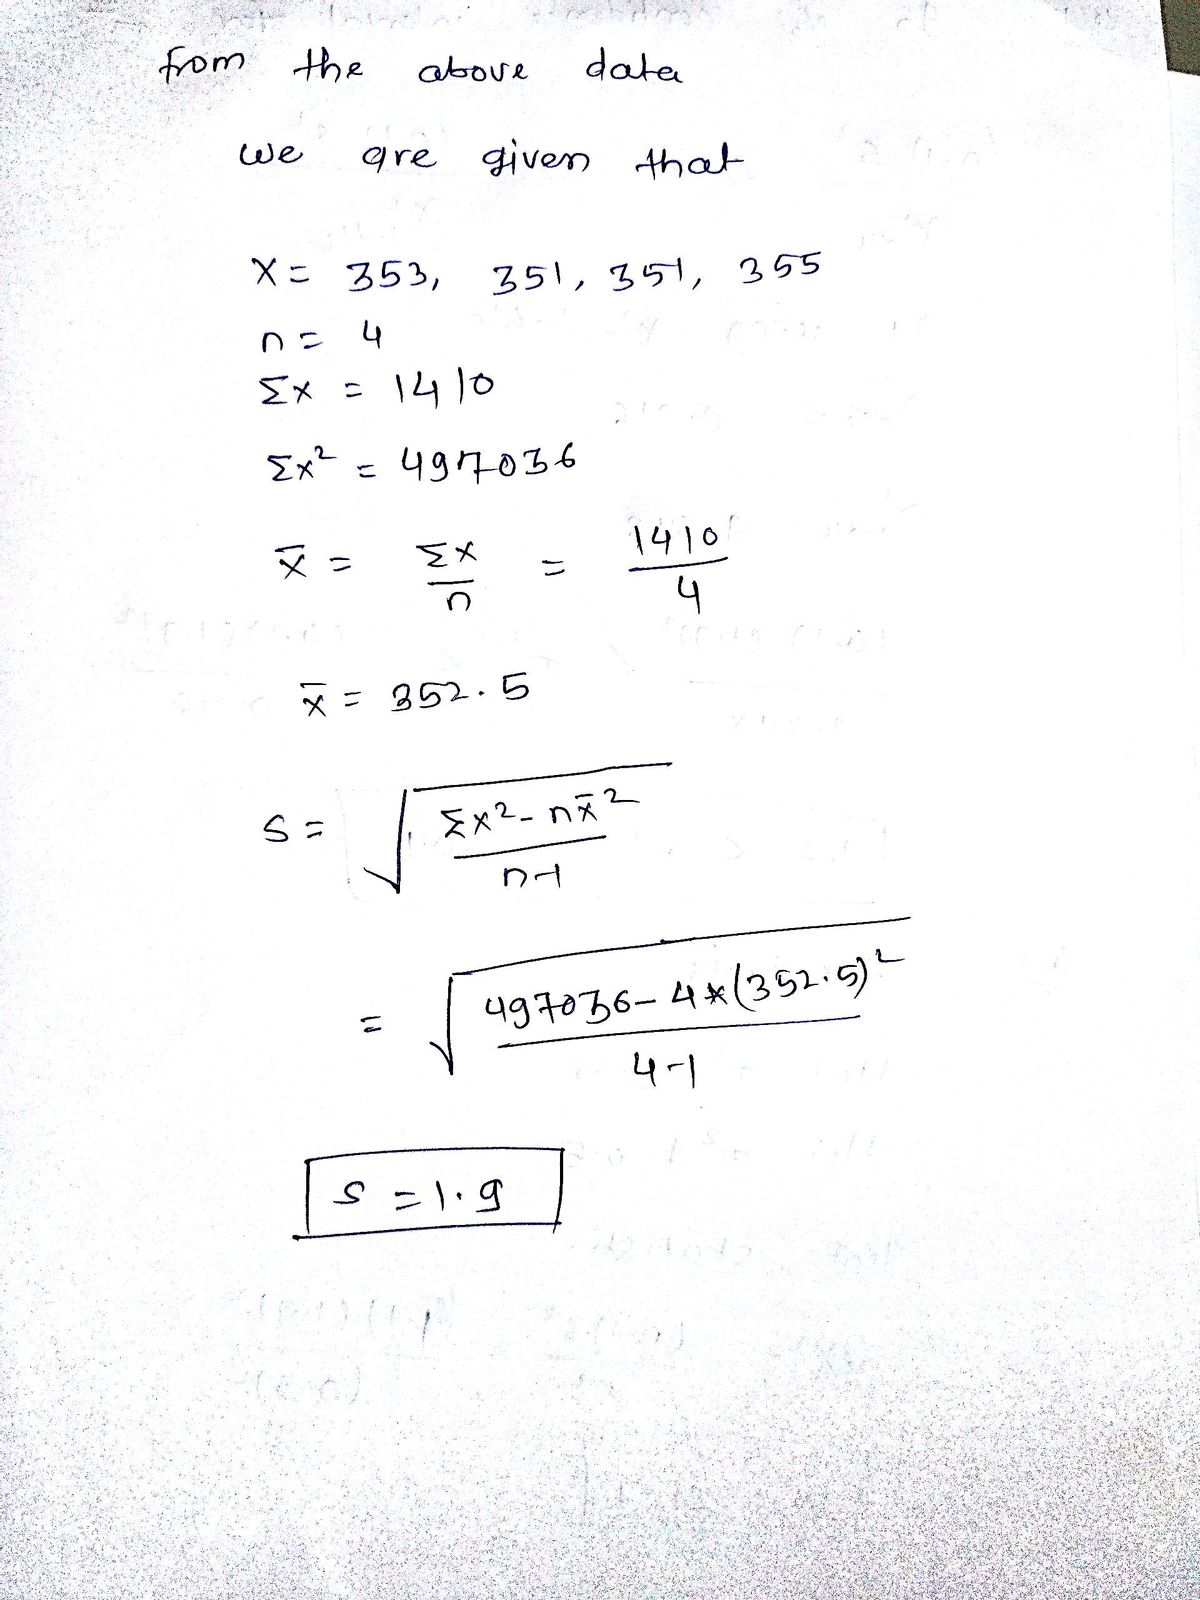 from the above data
we are given that
X = 353, 351, 351, 355
n = 4
Σx = 1410
Σx² = 497036
x̄ = Σx/n = 1410/4
x̄ = 352.5
S = √((Σx² - nx̄²)/(n-1))
= √((497036 - 4*(352.5)²)/(4-1))
S = 1.9